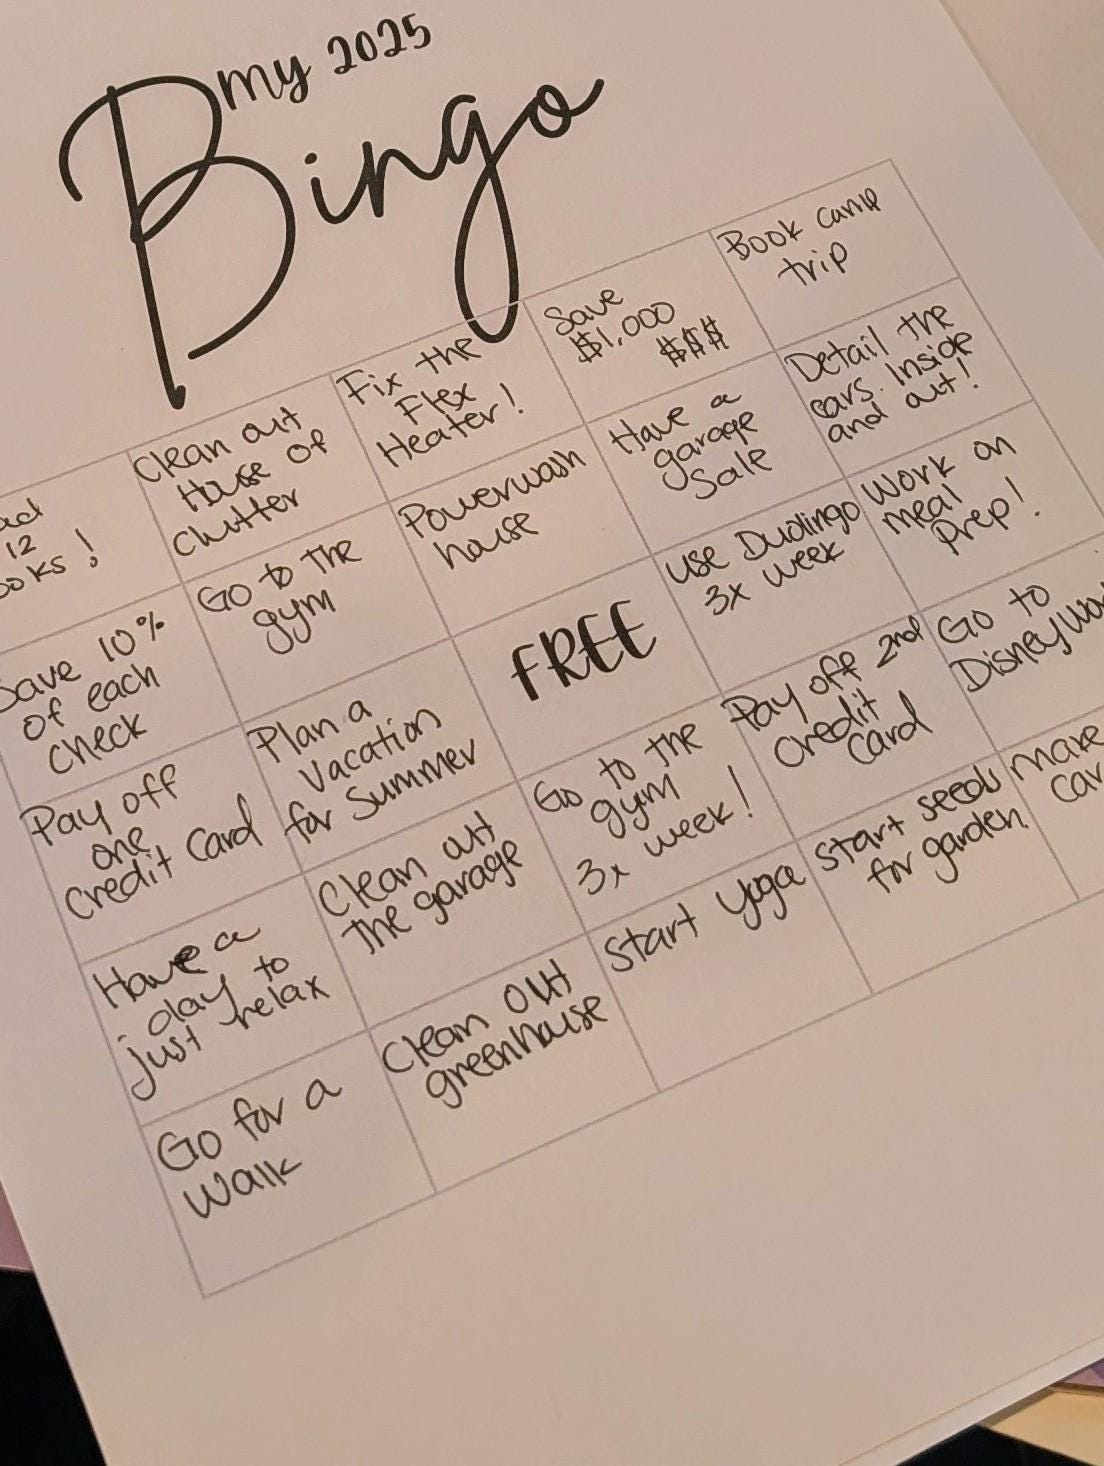 my 2025
Bingo
12
ooks!
Clean out
House of
clutter
Fix the
Flex
Heater!
Save
$1,000
$$$
Book camp
trip
Save 10%
of each
check
Go to the
gym
Powerwash
house
Have a
garage
Sale
Detail the
cars. Inside
and out!
Pay off
one
credit card
Plan a
vacation
for summer
FREE
use Duolingo
3x week
Work on
meal
Prep!
Have a
day to
just relax
Clean out
the garage
Go to the
gym
3x week!
Pay off 2nd
credit
card
Go to
DisneyWo
Go for a
walk
Clean out
greenhouse
start yoga
start seeds
for garden
make
car